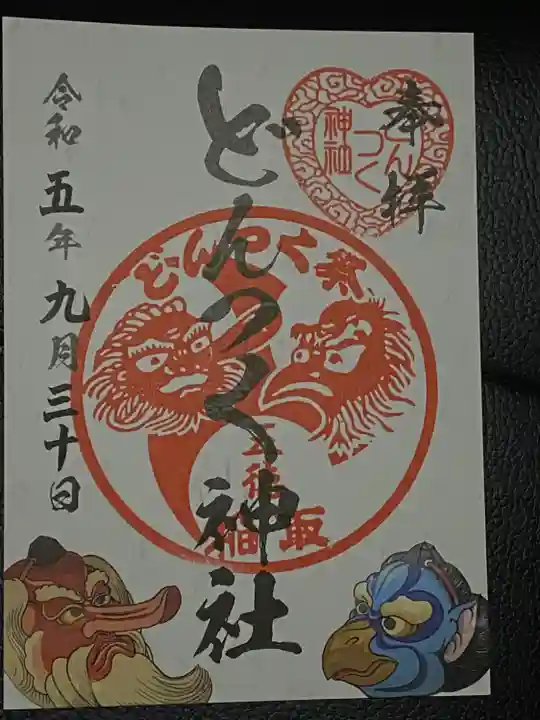 奉拝
どんつく
神社
どんつく神社
どんつく祭
稲取
令和五年九月三十日